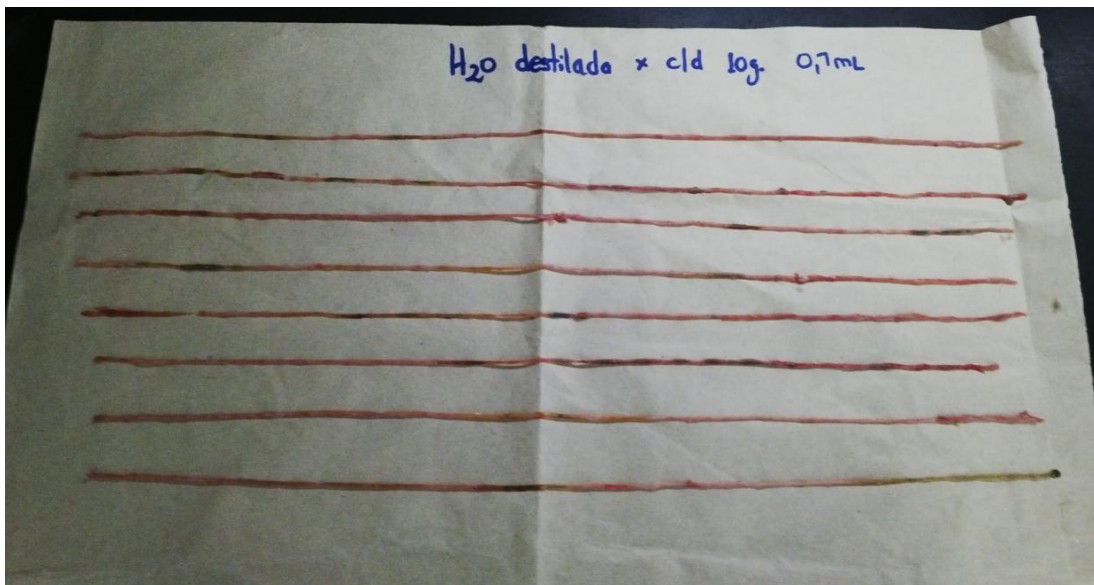 H₂O destilada x c/d 10g. 0,7mL